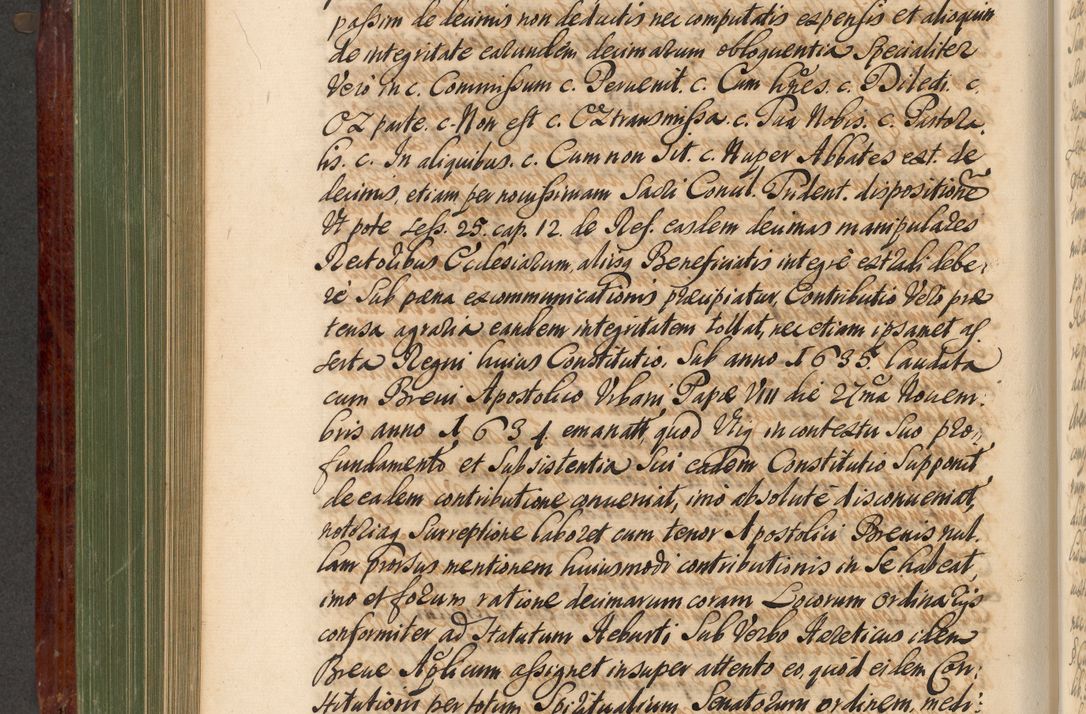 passim de decimis non deductis nec computatis expensis et alioquin
de integritate earundem decimarum obloquentia Specialiter
Vero in c. Commissum c. Pervenit. c. Cum hões. c. Dilecti. c.
Ex parte. c. Non est c. Ex transmissa. c. Tua Nobis. c. Pastora,
lis. c. In aliquibus. c. Cum non Sit. c. Nuper Abbates ext. de
decimis, etiam per novissimam Sacri Concil. Trident. dispositionē
Ut pote Sess. 25. cap. 12. de Ref. easdem decimas manipulares
Rectoribus Ecclesiarum, aliisq Beneficiatis integrè extradi debe,
re Sub pæna excommunicationis præcipiatur, Contributio Vero præ
tensa agraria eandem integritatem tollat, nec etiam ipsamet as
serta Regni huius Constitutio, Sub anno 1635. laudata
cum Brevi Apostolico Urbani Papæ VIII die 27ma Novem:
bris anno 1634. emanati, quod Uti in contextu Suo pro,
fundamento et Subsistentia Sui eadem Constitutio Supponit
de eadem contributione conveniat, imò absolutè disconveniat,
notoriaq Surreptione laboret cum tenor Apostolici Brevis nul,
lam prorsus mentionem huiusmodi contributionis in Se habeat,
imo et forum ratione decimarum coram Locorum ordinarijs
conformiter ad Statutum Heburti Sub Verbo Hereticus idem
Breve Aplicum assignet insuper attento eo, quòd eidem Con,
stitutioni per totum Spiritualium Senatorum ordinem, medi: